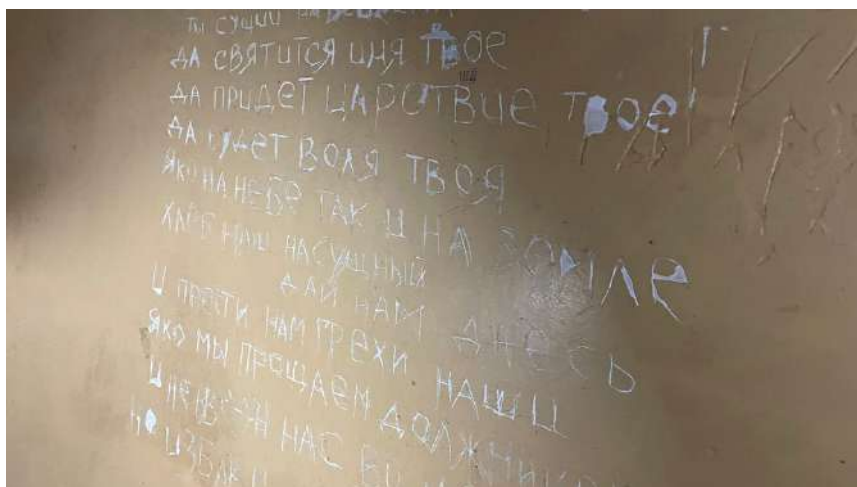 ТЫ СУЩИЙ НА
ДА СВЯТИТСЯ ИМЯ ТВОЕ
ДА ПРИДЕТ ЦАРСТВИЕ ТВОЕ
ДА БУДЕТ ВОЛЯ ТВОЯ
ЯКО НА НЕБЕ ТАК И НА ЗЕМЛЕ
ХЛЕБ НАШ НАСУЩНЫЙ
ДАЙ НАМ ДНЕСЬ
И ПРОСТИ НАМ ГРЕХИ НАШИ
ЯКО МЫ ПРОЩАЕМ
И НЕ НАС
НО ИЗБАВИ